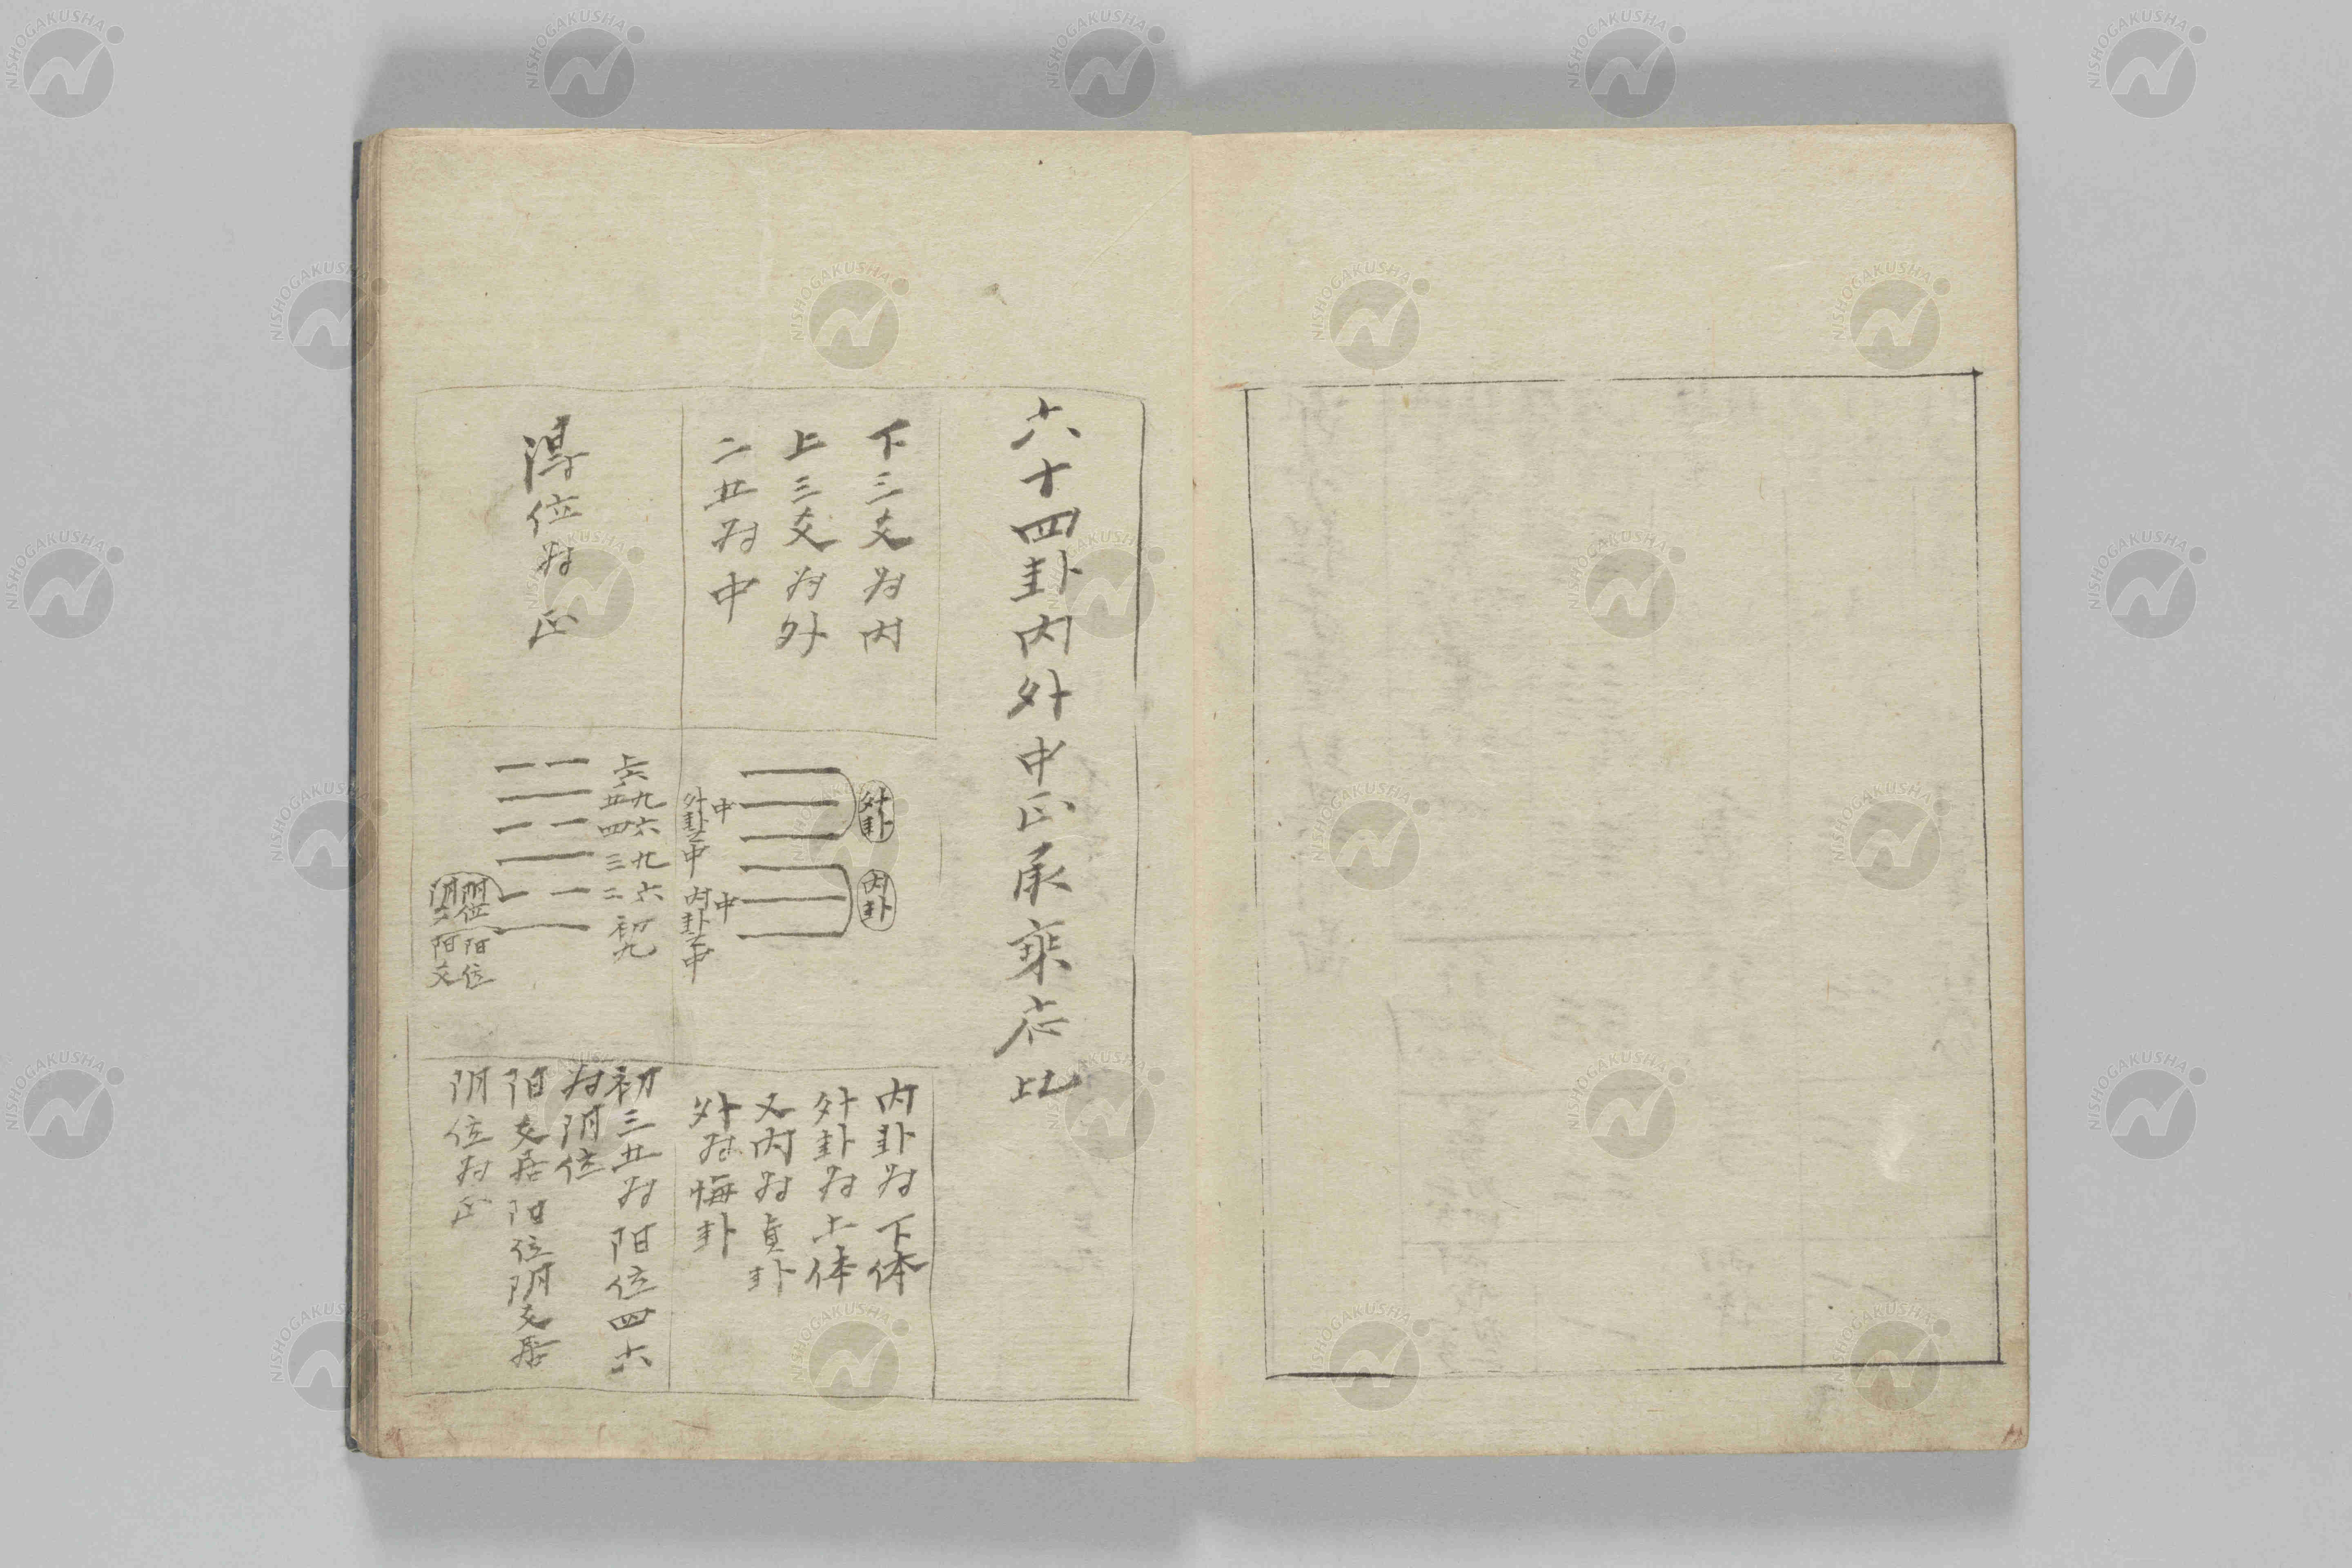 六十四卦内外中正承乗应比
下三爻為内
上三爻為外
二五為中
外卦
内卦
中
外卦之中
中
内卦之中
内卦為下体
外卦為上体
又内為貞卦
外為悔卦
得位為正
上六
九五
六四
九三
六二
初九
阴位
阴爻
阳位
阳爻
初三五為阳位四六
為阴位
阳爻居阳位阴爻居
阴位為正
NISHOGAKUSHA